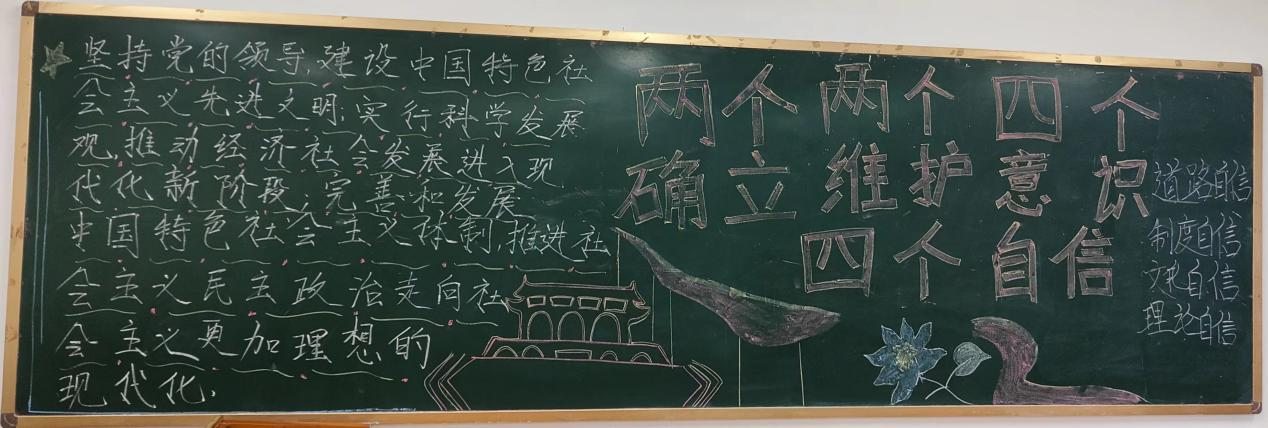 坚持党的领导,建设中国特色社
会主义先进文明,实行科学发展
观,推动经济社会发展进入现
代化新阶段,完善和发展
中国特色社会主义体制,推进社
会主义民主政治走向社
会主义更加理想的
现代化.
两个 两个 四个
确立 维护 意识
四个自信
道路自信
制度自信
文化自信
理论自信